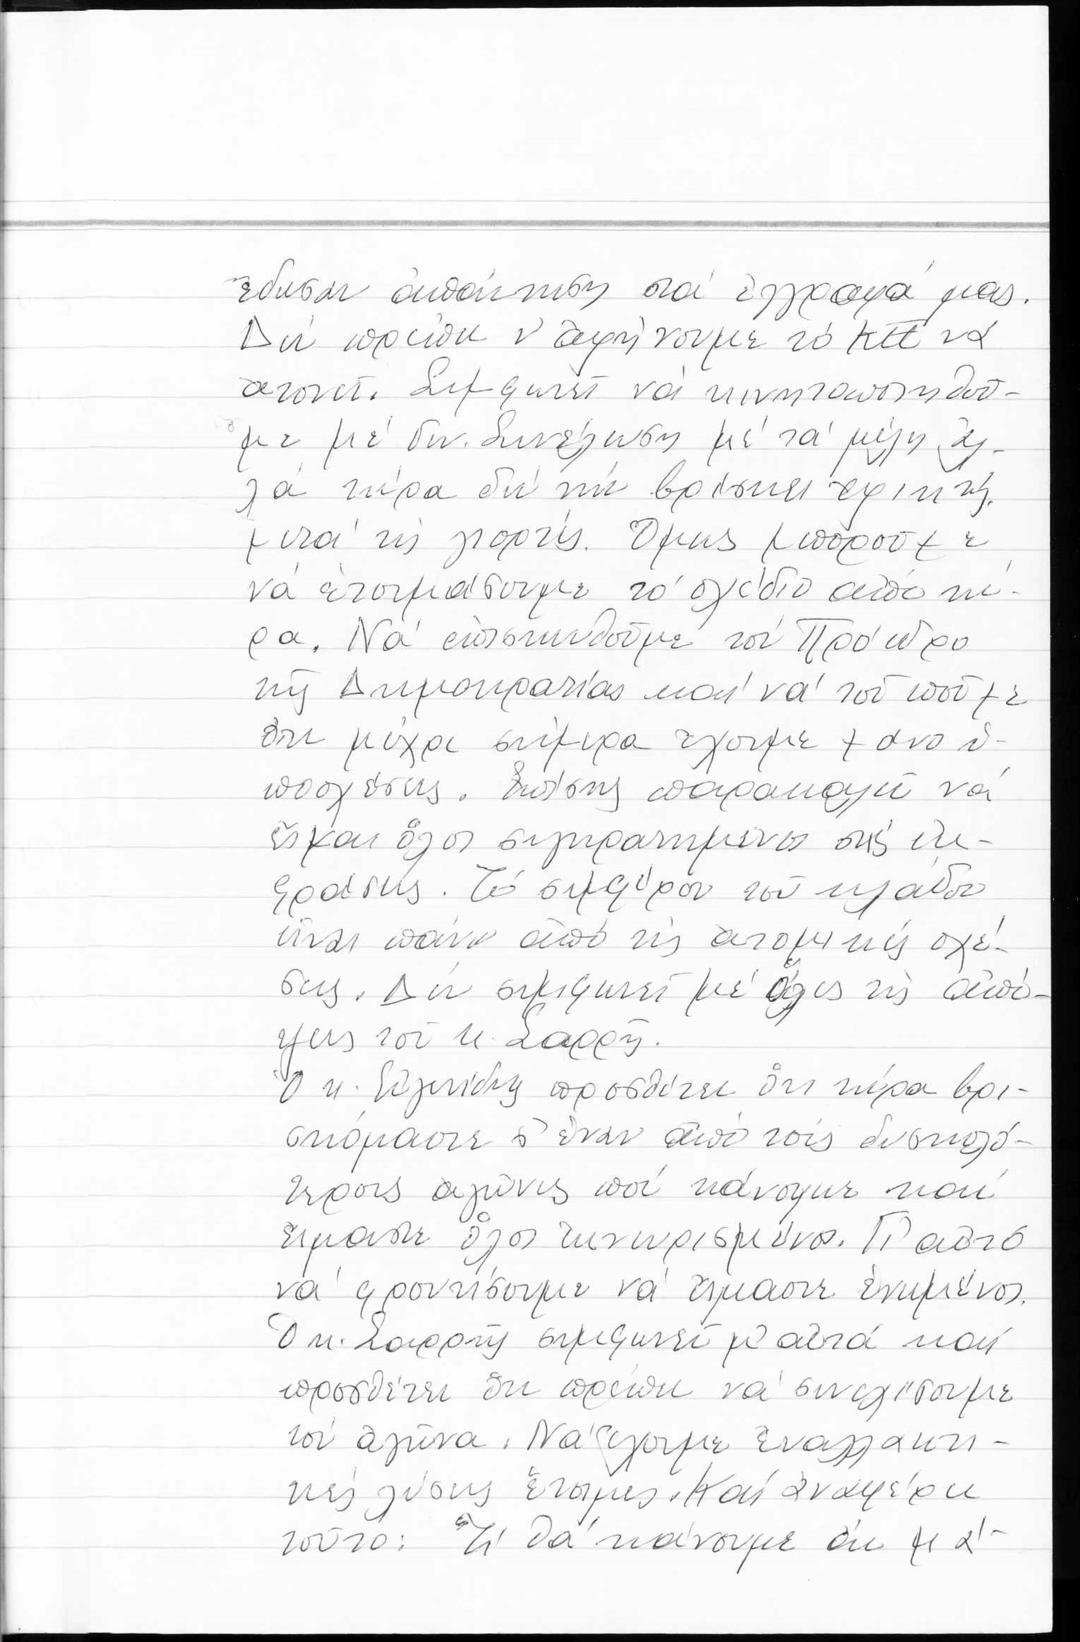 ἔδωσαν ἀπάντηση στά ἔγγραφά μας.
Δέν πρέπει ν' ἀφήνουμε τό ΚΠ νά
ἀτονεῖ. Συμφωνεῖ νά κινητοποιηθοῦ-
με μέ Γεν. Συνέλευση μέ τά μέλη ἀλ-
λά τώρα δέν τήν βρίσκει ἐφικτή,
μετά τίς γιορτές. Ὅμως μποροῦμε
νά ἑτοιμάσουμε τό σχέδιο ἀπό τώ-
ρα. Νά ἐπισκεφθοῦμε τόν Πρόεδρο
τῆς Δημοκρατίας καί νά τοῦ ποῦμε
ὅτι μέχρι σήμερα ἔχουμε μόνο ὑ-
ποσχέσεις. Ἐπίσης παρακαλεῖ νά
εἶναι ὅλοι συγκρατημένοι στίς ἐκ-
φράσεις. Τό συμφέρον τοῦ κλάδου
εἶναι πάνω ἀπό τίς ἀτομικές σχέ-
σεις. Δέν συμφωνεῖ μέ ὅλες τίς ἀπό-
ψεις τοῦ κ. Σαρρῆ.
Ὁ κ. προσθέτει ὅτι τώρα βρι-
σκόμαστε σ' ἕναν ἀπό τούς δυσκολό-
τερους ἀγῶνες πού κάνουμε καί
εἴμαστε ὅλοι ἐκνευρισμένοι. Γι' αὐτό
νά φροντίσουμε νά εἴμαστε ἑνωμένοι.
Ὁ κ. Σαρρῆς συμφωνεῖ μ' αὐτά καί
προσθέτει ὅτι πρέπει νά συνεχίσουμε
τόν ἀγῶνα. Νά ἔχουμε ἐναλλακτι-
κές λύσεις ἕτοιμες. Καί ἀναφέρει
τοῦτο: "Τί θά κάνουμε ἄν μᾶ-